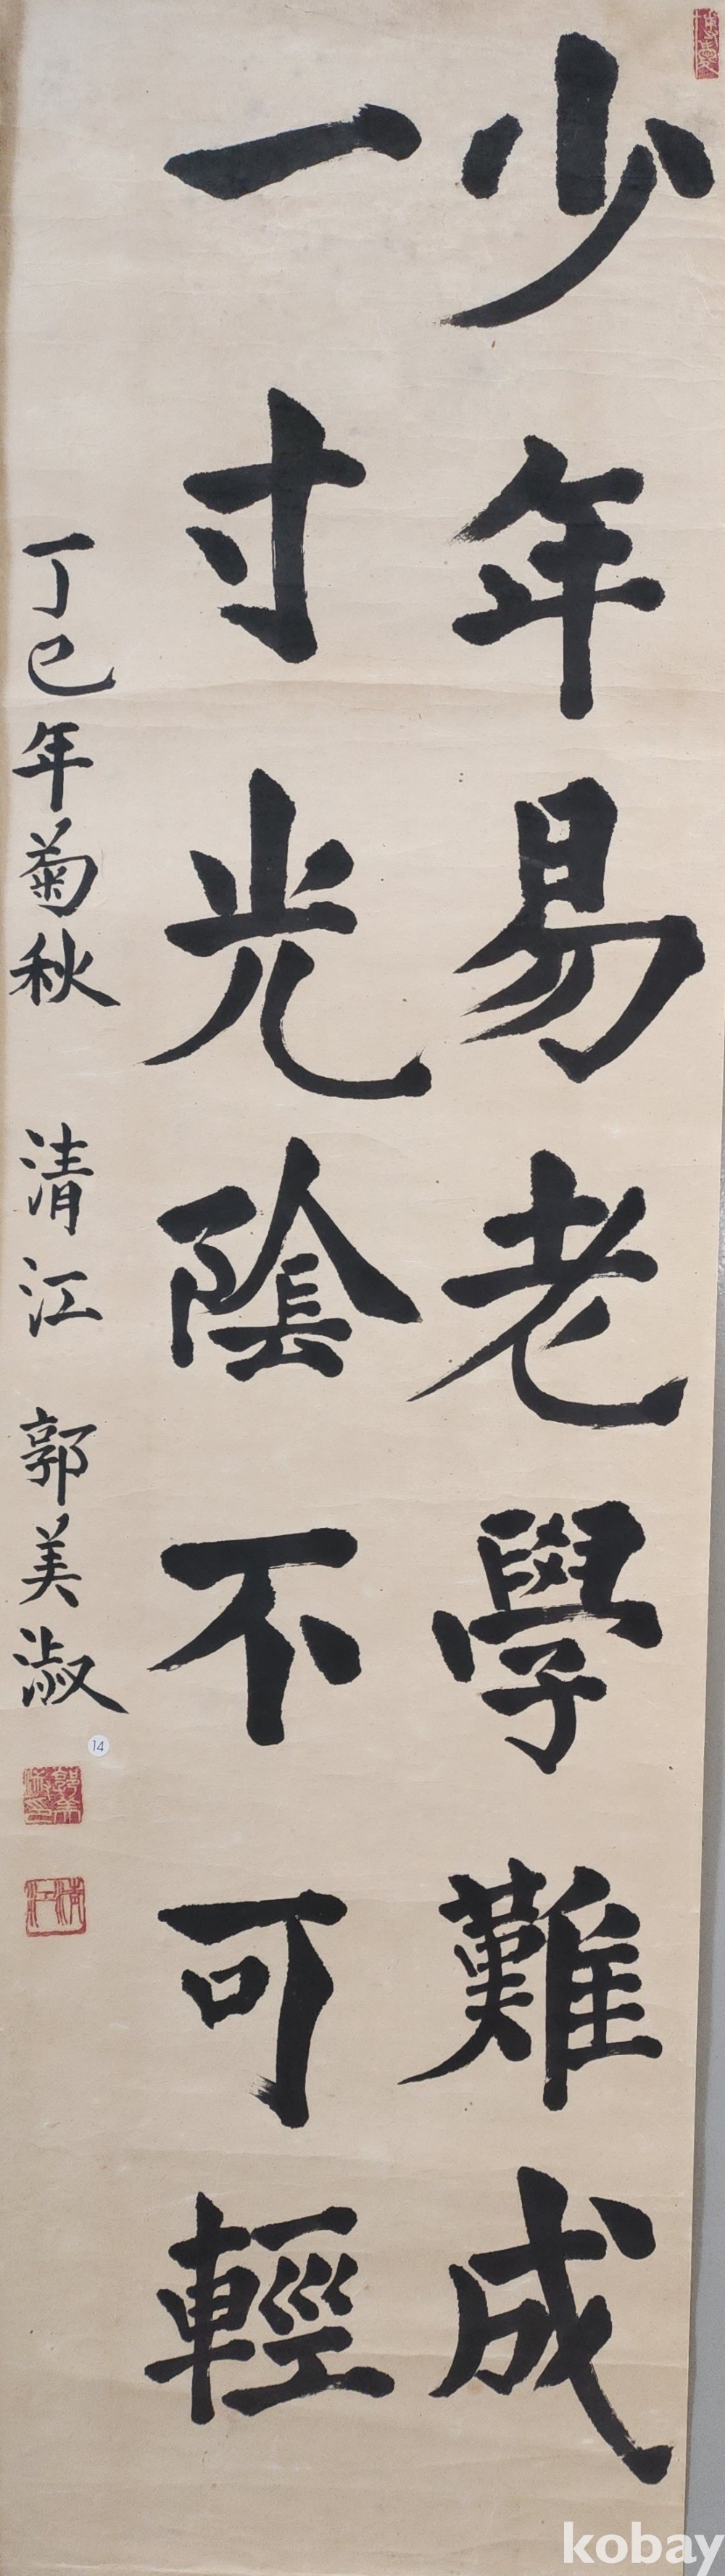 少年易老學難成
一寸光陰不可輕
丁巳年菊秋 清江 郭美淑
14
郭美淑印
清江
kobay